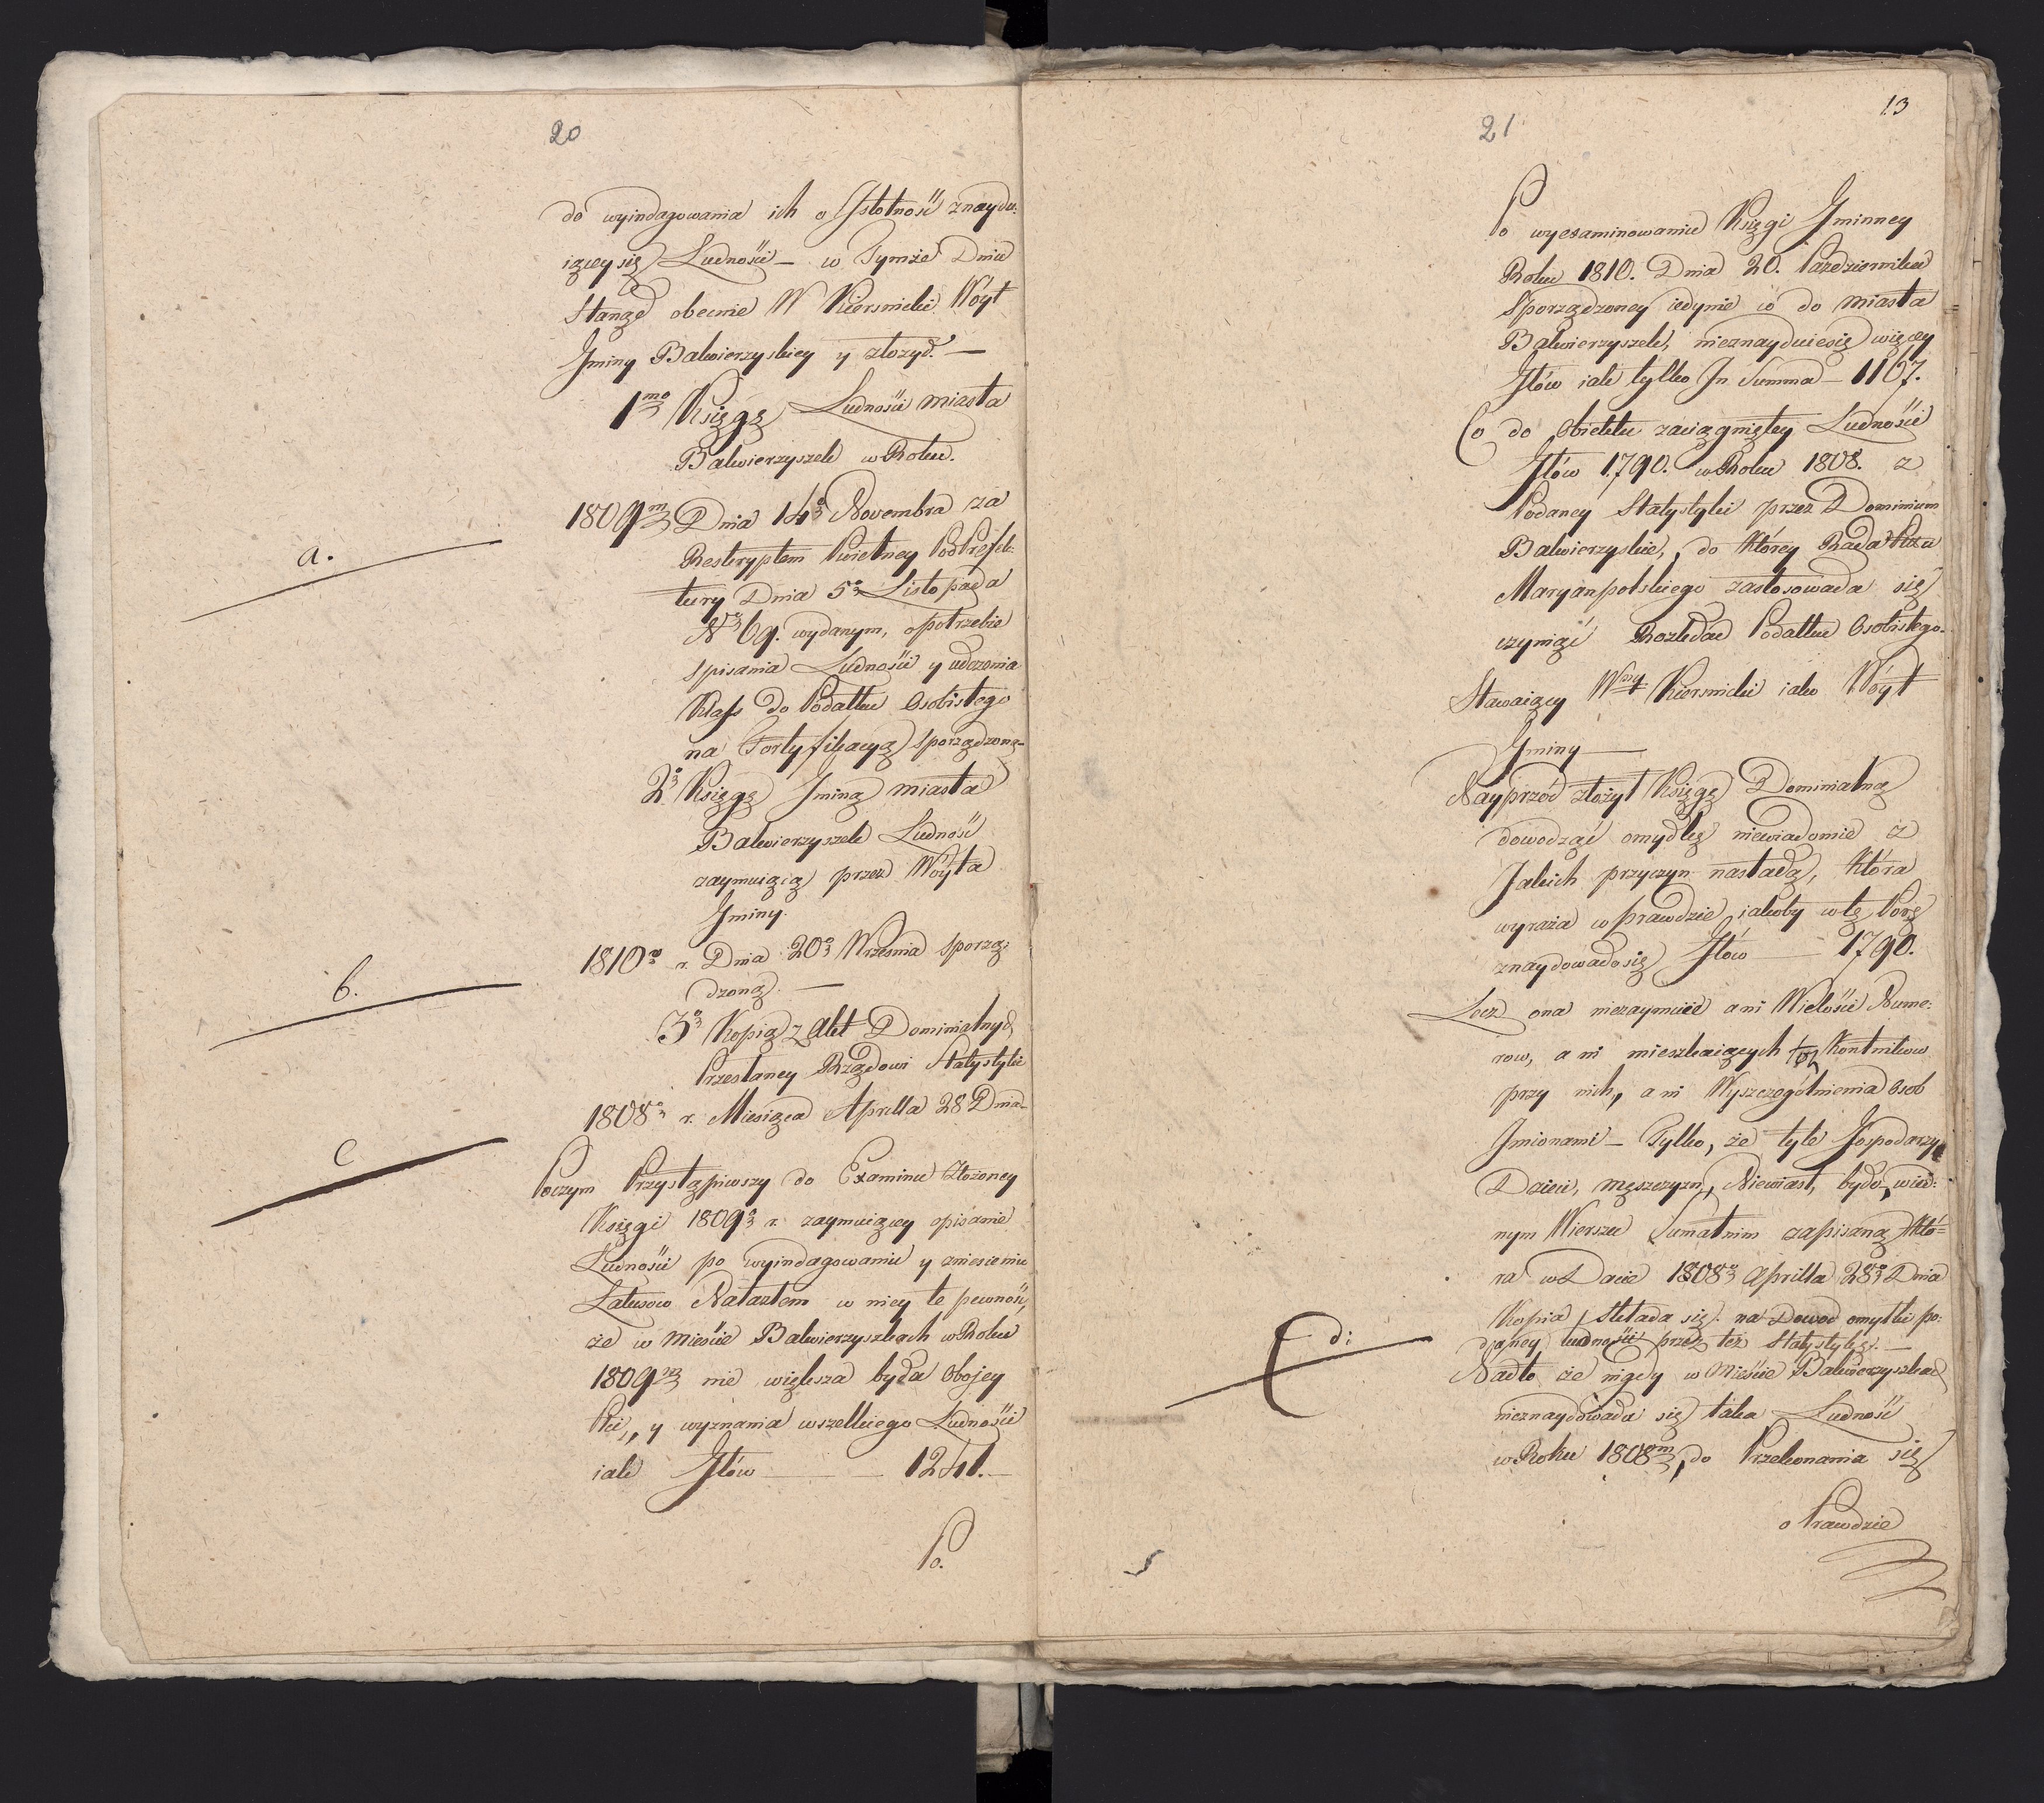 20
do wyindagowania ich o Istotność znaydu:
iącey się Ludności – w Tymże Dniu
Stanął obecnie W Kiersnicki Wóyt
Gminy Balwierzyskiey y złożył. —
1mo Księgę Ludności miasta
Balwierzyszek w Roku.
a.
1809m Dnia 14o Novembra za
Reskryptem Świetney PodPrefek:
tury Dnia 5o Listopada
No 69. wydanym, o potrzebie
spisania Ludności y
Klass do Podatku Osobistego
na Fortyfikacyą sporządzoną
2o Księgę Gminą miasta
Balwierzyszek Ludność
zaymuiącą przez Wóyta
Gminy.
b.
1810o r. Dnia 20o Września sporzą:
dzoną. —
3o Kopią z Akt Dominialnych
Przesłaney Rządowi Statystyki
c
1808o r. Miesiąca Aprilla 28 Dnia
Poczym Przystąpiwszy do Examinu Złożoney
Księgi 1809o r. zaymuiącey opisanie
Ludności po wyindagowaniu y zniesieniu
Latusow Nalazłem w niey te pewność,
że w Mieście Balwierzyszkach w Roku
1809m nie większa była Obojey
Płci, y wyznania wszelkiego Ludności
iak Głów — 1241. —
Po.
21
13
Po wyexaminowaniu Księgi Gminney
Roku 1810. Dnia 20. Pazdziernika
Sporządzoney iedynie co do miasta
Balwierzyszek, nieznayduie się więcey
Głów iak tylko In Summa – 1167.
Co do Obiektu zaciągniętey Ludności
Głów 1790. w Roku 1808. z
Podaney Statystyki przez Dominium
Balwierzyskie, do Którey Rada Pttu
Maryanpolskiego zastosowała się
czyniąc Rozkład Podatku Osobistego.
Stawaiący Wny Kiersnicki iako Wóyt
Gminy —
Nayprzód złożył Księgę Dominialną
dowodząc omyłkę niewiadomie z
Jakich przyczyn nastałą, Która
wyraża w prawdzie iakoby w tę Porę
znaydowało się Głów — 1790.
Lecz ona niezaymuie ani Wielości Nume:
row, ani mieszkaiących Kontnikow
przy nich, ani Wyszczegolnienia Osob
Imionami – Tylko, że tyle Gospodarzy
Dzieci, męszczyzn, Niewiast, było, w ied:
nym Wierszu Sumalnim zapisaną Któ=
ra w Dacie 1808o Aprilla 28o Dnia
d:
Kopia składa się na Dowod omyłki po:
daney ludności przez też Statystykę. —
Nadto że nigdy w Mieście Balwierzyszkach
nieznaydowała się taka Ludność
w Roku 1808m, do Przekonania się
o Prawdzie